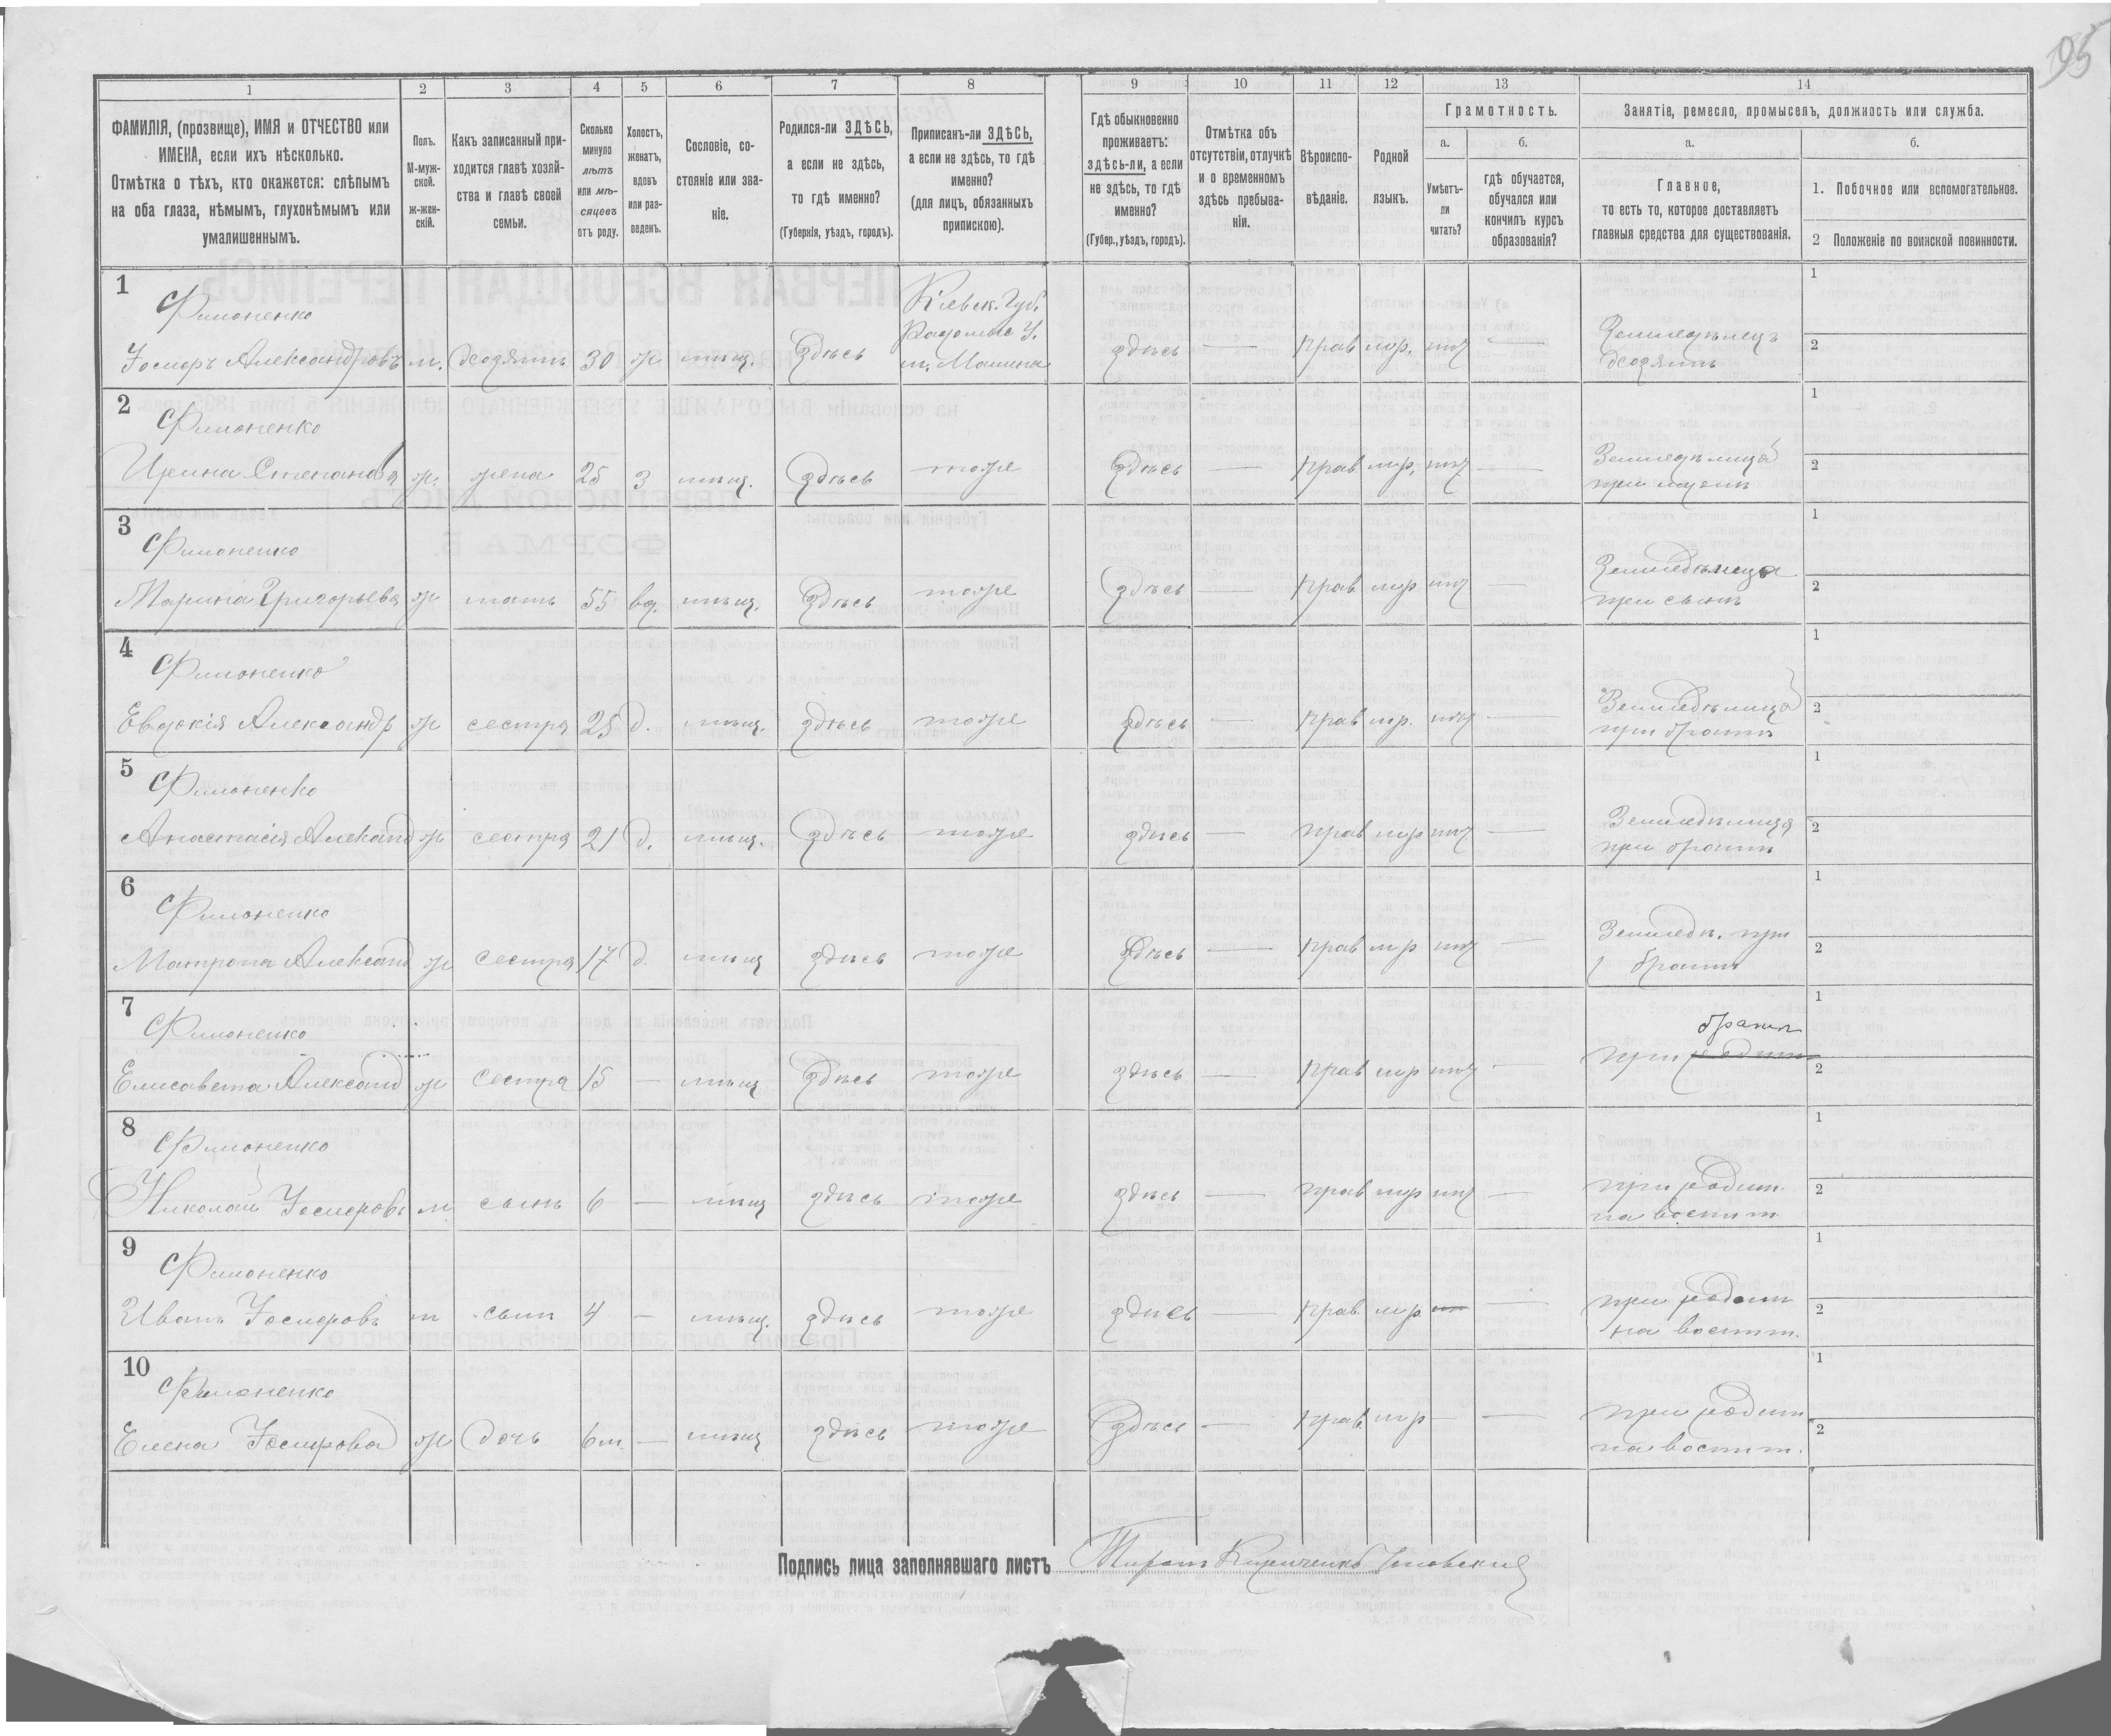 95
1 2 3 4 5 6 7 8 9 10 11 12 13 14
ФАМИЛІЯ, (прозвище), ИМЯ и ОТЧЕСТВО или
ИМЕНА, если ихъ нѣсколько.
Отмѣтка о тѣхъ, кто окажется: слѣпымъ
на оба глаза, нѣмымъ, глухонѣмымъ или
умалишеннымъ.
Полъ.
М-муж-
ской.
Ж-жен-
скій.
Какъ записанный при-
ходится главѣ хозяй-
ства и главѣ своей
семьи.
Сколько
минуло
лѣтъ
или мѣ-
сяцевъ
отъ роду.
Холостъ,
женатъ,
вдовъ
или раз-
веденъ.
Сословіе, со-
стояніе или зва-
ніе.
Родился-ли ЗДѢСЬ,
а если не здѣсь,
то гдѣ именно?
(Губернія, уѣздъ, городъ).
Приписанъ-ли ЗДѢСЬ,
а если не здѣсь, то гдѣ
именно?
(для лицъ, обязанныхъ
припискою).
Гдѣ обыкновенно
проживаетъ:
здѣсь-ли, а если
не здѣсь, то гдѣ
именно?
(Губер., уѣздъ, городъ).
Отмѣтка объ
отсутствіи, отлучкѣ
и о временномъ
здѣсь пребыва-
ніи.
Вѣроиспо-
вѣданіе.
Родной
языкъ.
Грамотность.
а.
Умѣетъ-
ли
читать?
б.
гдѣ обучается,
обучался или
кончилъ курсъ
образованія?
Занятіе, ремесло, промыселъ, должность или служба.
а.
Главное,
то есть то, которое доставляетъ
главныя средства для существованія.
б.
1. Побочное или вспомогательное.
2 Положеніе по воинской повинности.
1
Филоненко
Александровъ м. хозяинъ 30 ж мѣщ. Здѣсь
Кіевск. Губ.
Радомыс У.
м. Малина
здѣсь — прав мр. нѣт —
Земледѣлецъ
хозяинъ
1
2
2
Филоненко
Ирина Степанова ж. жена 25 з мѣщ. Здѣсь тоже Здѣсь — прав мр. нѣт —
Земледѣлица
при мужѣ
1
2
3
Филоненко
Марина Григорьева ж мать 55 вд. мѣщ. Здѣсь тоже Здѣсь — прав мр нѣт —
Земледѣлица
при сынѣ
1
2
4
Филоненко
Евдокія Александр ж сестра 25 д. мѣщ. здѣсь тоже здѣсь — прав мр. нѣт —
Земледѣлица
при братѣ
1
2
5
Филоненко
Анастасія Александ ж сестра 21 д. мѣщ. здѣсь тоже здѣсь — прав мр нѣт —
Земледѣлица
при братѣ
1
2
6
Филоненко
Матрона Александ ж сестра 17 д. мѣщ здѣсь тоже Здѣсь — прав мр нѣт —
Земледѣ. при
братѣ
1
2
7
Филоненко
Елисавета Александ ж сестра 15 — мѣщ Здѣсь тоже здѣсь — прав мр нѣт —
братѣ
при родит
1
2
8
Филоненко
Николай м сынъ 6 — мѣщ здѣсь тоже здѣсь — прав мр нѣт —
при родит.
на воспит
1
2
9
Филоненко
Иванъ м сынъ 4 — мѣщ. здѣсь тоже здѣсь — прав. мр. —
при родит
на воспит.
1
2
10
Филоненко
Елена ж дочь 6 м. — мѣщ здѣсь тоже Здѣсь — прав. мр — —
при родит
на воспит.
1
2
Подпись лица заполнявшаго листъ